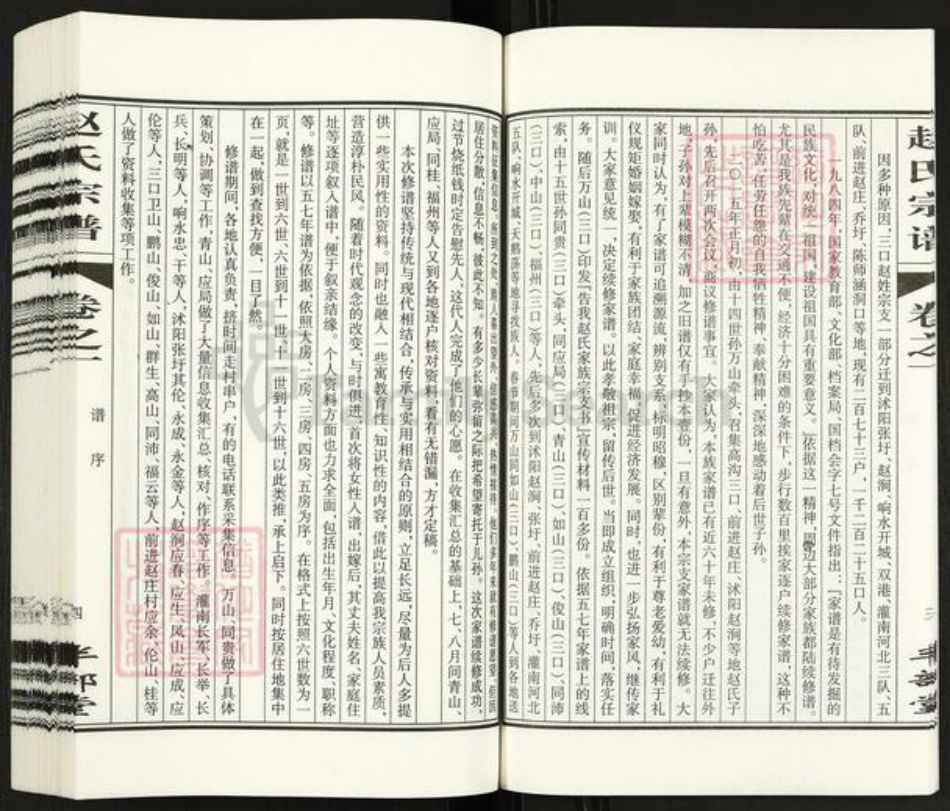 赵氏宗谱
卷之一
三
半部堂
因多种原因，三口赵姓宗支一部分迁到沭阳张圩、赵涧、响水开城、双港、灌南河北三队、五
队，前进赵庄、乔圩、陈师涵洞口等地，现有二百七十三户，一千二百二十五口人。
一九八四年，国家教育部、文化部、档案局、国档会字七号文件指出：『家谱是有待发掘的
民族文化，对统一祖国，建设祖国具有重要意义。』依据这一精神，周边大部分家族都陆续修谱。
尤其是我族先辈在交通不便、经济十分困难的条件下，步行数百里挨家逐户续修家谱，这种不
怕吃苦、任劳任怨的自我牺牲精神、奉献精神，深深地感动着后世子孙。
二〇一五年正月初，由十四世孙万山牵头，召集高沟三口、前进赵庄、沭阳赵涧等地赵氏子
孙，先后召开两次会议，商议修谱事宜。大家认为，本族家谱已有近六十年未修，不少户迁往外
地，子孙对上辈模糊不清，加之旧谱仅有手抄本壹份，一旦有意外，本宗支家谱就无法续修。大
家同时认为，有了家谱可追溯源流，辨别支系，标明昭穆，区别辈份，有利于尊老爱幼，有利于礼
仪规矩婚姻嫁娶，有利于家族团结、家庭幸福，促进经济发展。同时，也进一步弘扬家风，继传家
训。大家意见统一，决定续修家谱。以此孝敬祖宗，留传后世。当即成立组织，明确时间，落实任
务。随后万山（三口）印发『告我赵氏家族宗支书』宣传材料一百多份。依据五七年家谱上的线
索，由十五世孙同贵（三口）牵头，同应局（三口）、青山（三口）、如山（三口）、俊山（三口）、同沛
（三口）、中山（三口）、福州（三口）等人，先后多次到沭阳赵涧、张圩、前进赵庄、乔圩、灌南河北
五队、响水开城、天鹅荡等地寻找族人。春节期间万山同如山（三口）、鹏山（三口）等人到各地送
居住分散，信息不畅，彼此不知。有多少长辈弥留之际把希望寄托于儿孙。这次家谱续修成功，
过节烧纸钱时定告慰先人，这代人完成了他们的心愿。在收集汇总的基础上，七、八月间青山、
应局、同桂、福州等人又到各地逐户核对资料，看有无错漏，方才定稿。
本次修谱坚持传统与现代相结合，传承与实用相结合的原则，立足长远，尽量为后人多提
供一些实用性的资料。同时也融入一些寓教育性、知识性的内容，借此以提高我宗族人员素质，
营造淳朴民风。随着时代观念的改变，与时俱进，首次将女性入谱，出嫁后，其丈夫姓名、家庭住
址等逐项叙入谱中，便于叙亲结缘。个人资料方面也力求全面，包括出生年月、文化程度、职称
等。修谱以五七年谱为依据，依照大房、二房、三房、四房、五房为序。在格式上按照六世数为一
页，就是一世到六世、六世到十一世、十一世到十六世，以此类推，承上启下。同时按居住地集中
在一起，做到查找方便，一目了然。
修谱期间，各地认真负责，挤时间走村串户，有的电话联系采集信息。万山、同贵做了具体
策划、协调等工作，青山、应局做了大量信息收集汇总、核对、作序等工作。灌南长军、长举、长
兵、长明等人，响水忠、干等人，沭阳张圩其伦、永成、永金等人，赵涧应春、应生、风山、应成、应
伦等人，三口卫山、鹏山、俊山、如山、群生、高山、同沛、福云等人，前进赵庄村应余、伦山、桂等
人做了资料收集等项工作。
赵氏宗谱
卷之一
谱序
四
半部堂